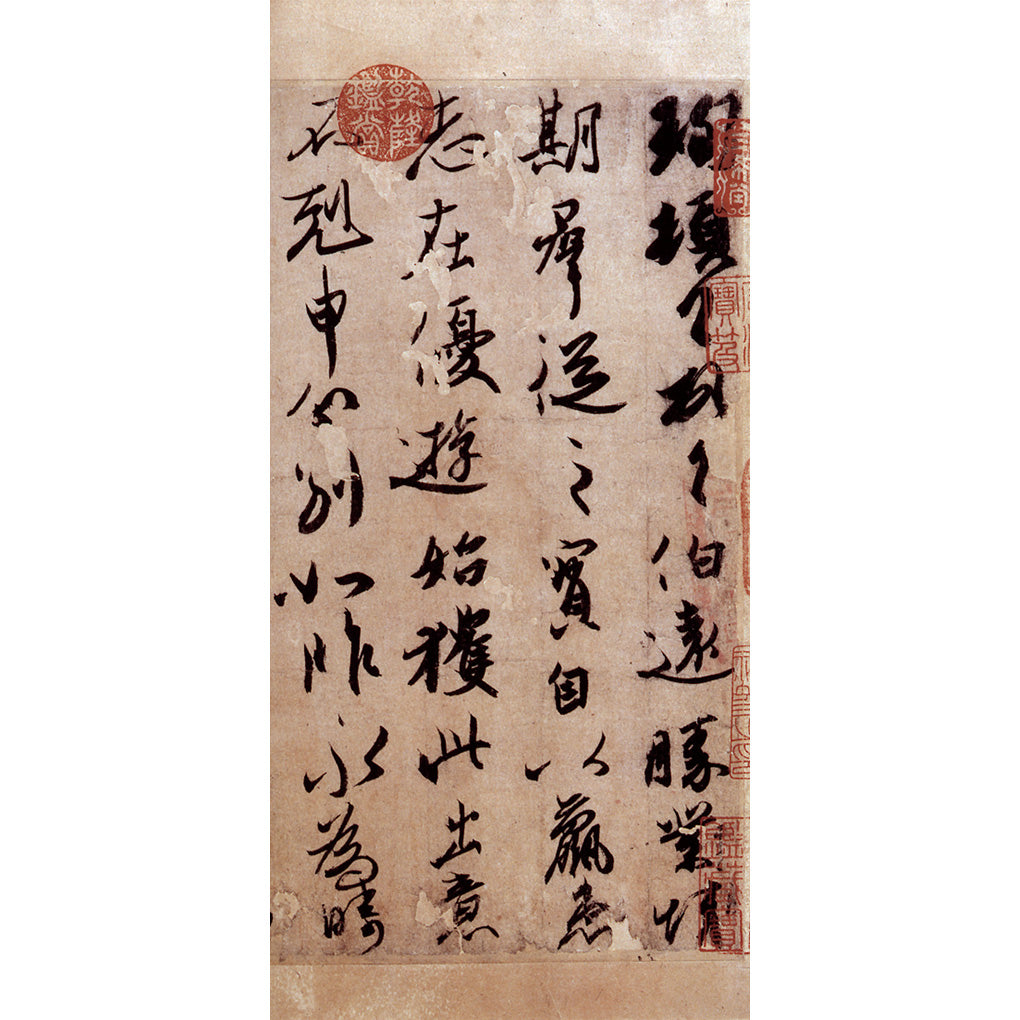 珣頓首頓首伯遠勝業情
期群從之寶自以羸患
志在優遊始獲此出意
不剋申分別如昨永為疇
乾隆鑑賞